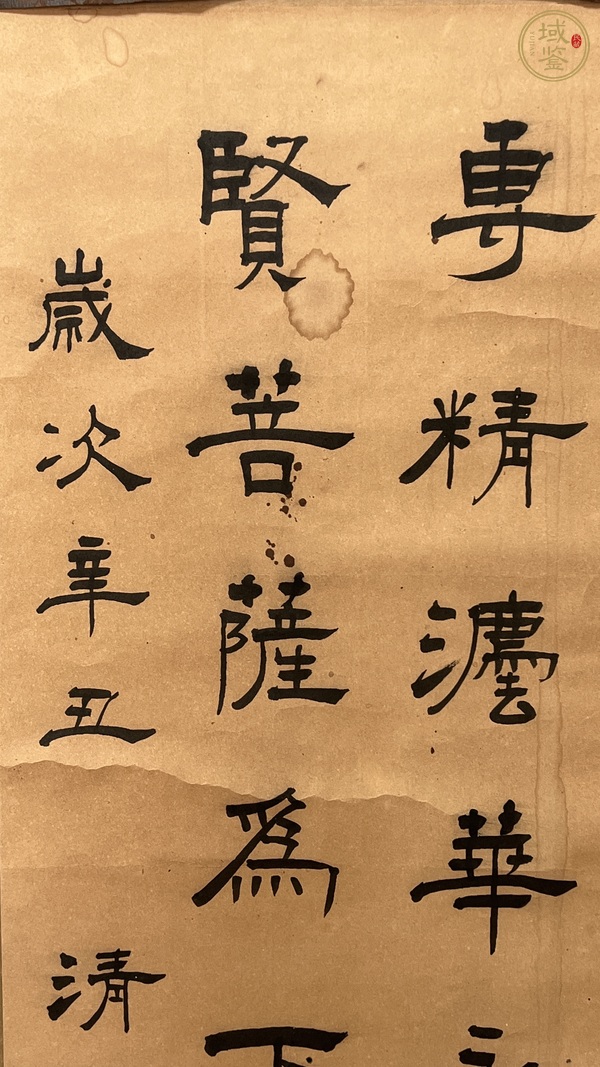 專精灋華
賢菩薩為下
歲次辛丑 清
域鉴